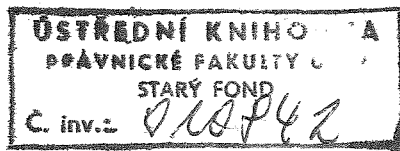 ÚSTŘEDNÍ KNIHO A
PRÁVNICKÉ FAKULTY
STARÝ FOND
Č. inv.: